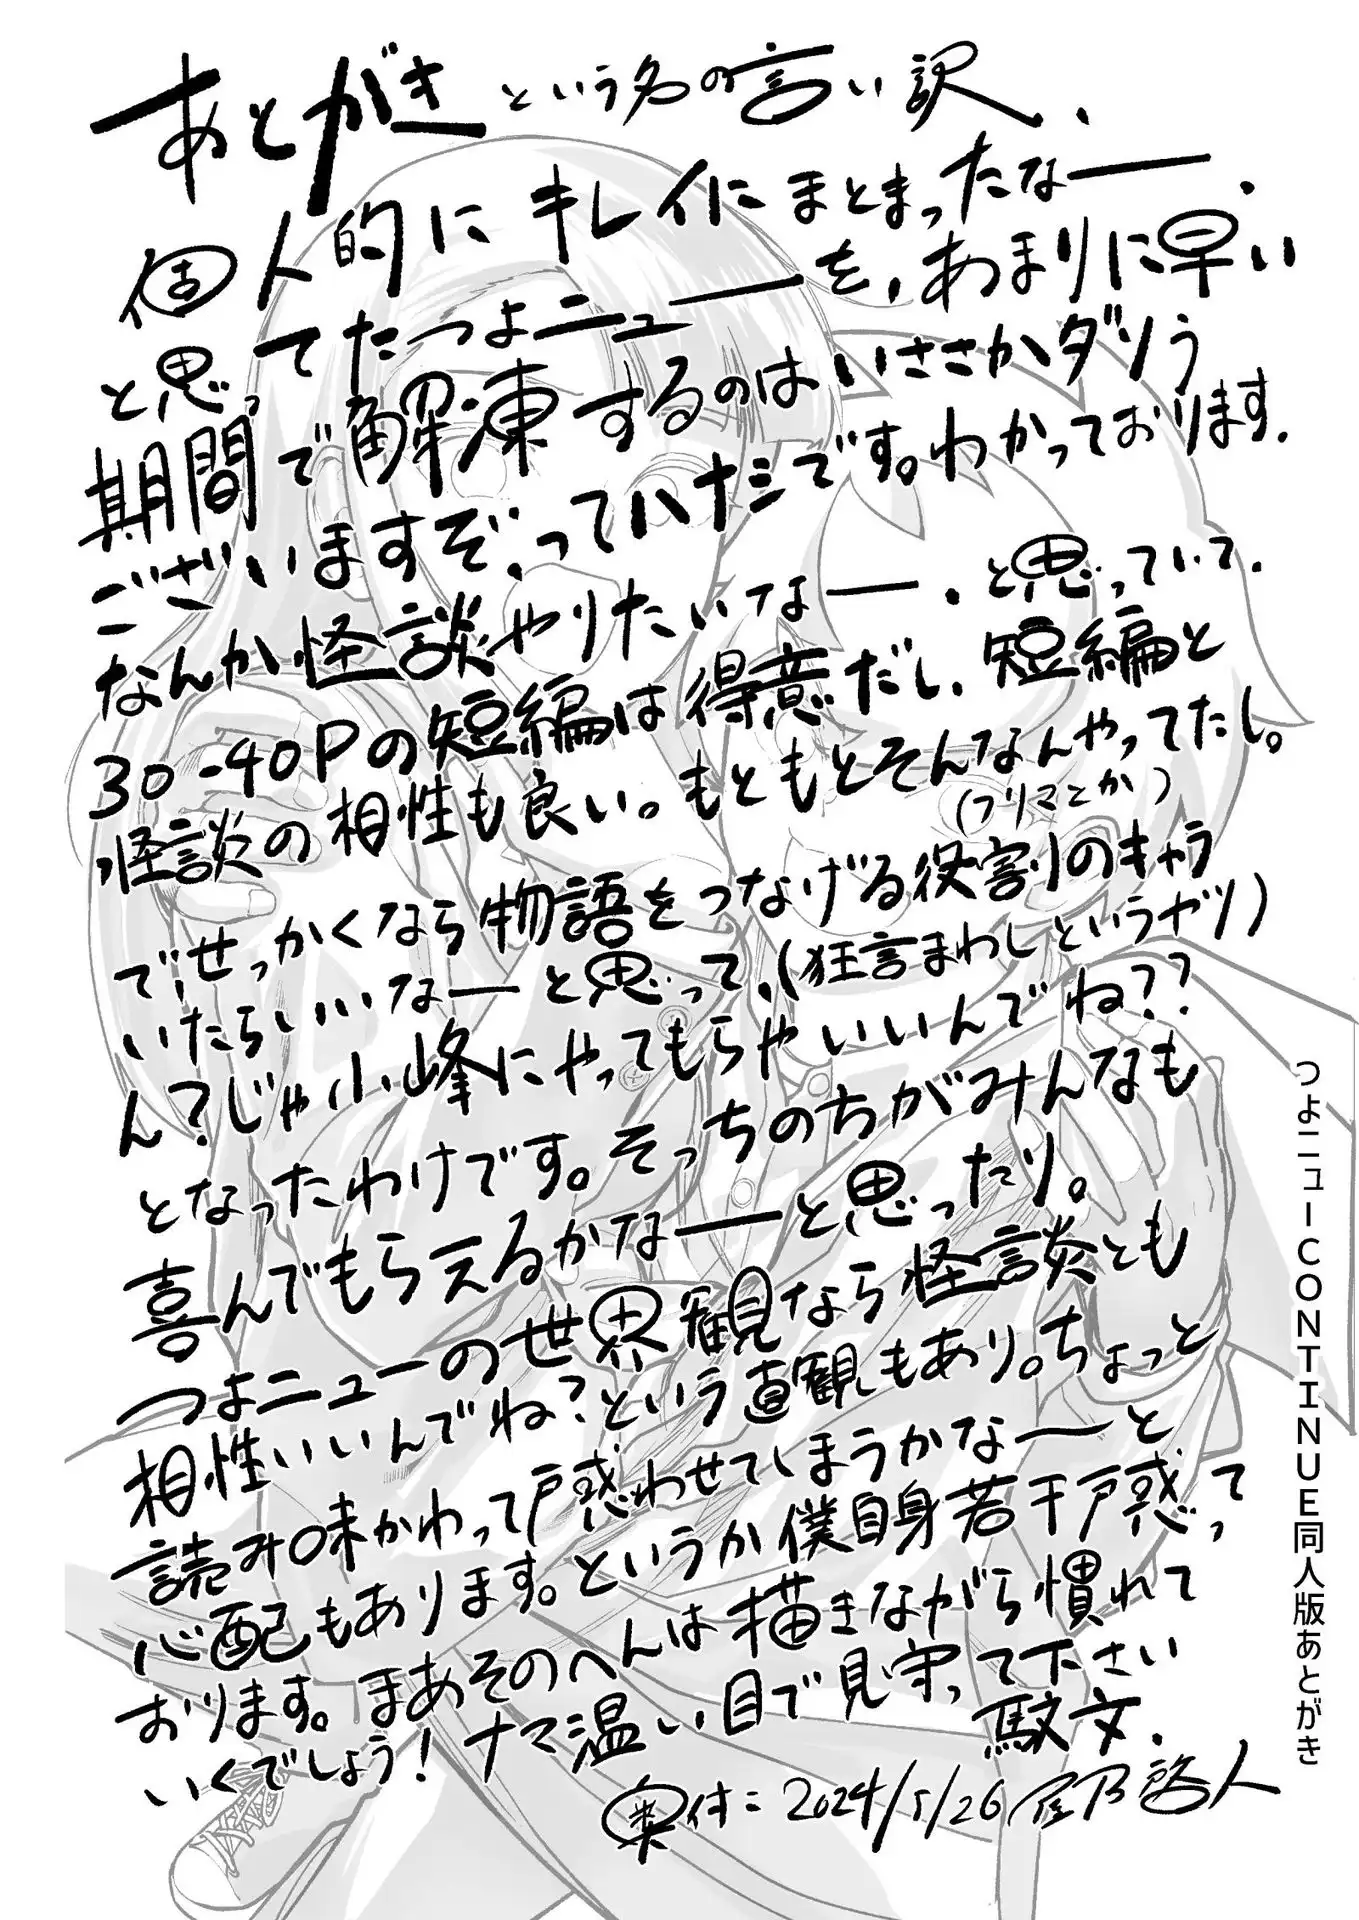 あとがきという名の言い訳、
個人的にキレイにまとまったなー、
と思ってたつよニューを、あまりに早い
期間で解凍するのはいささかダサう
ございますぞ、ってハナシです。わかっております。
なんか怪談やりたいなー、と思っていて、
30-40Pの短編は得意だし、短編と
怪談の相性も良い。もともとそんなんやってたし。
(フリマンとか)
で、せっかくなら物語をつなげる役割のキャラ
いたらいいなーと思って、(狂言まわしというヤツ)
ん?じゃ小峰にやってもらやいいんでね??
となったわけです。そっちの方がみんなも
喜んでもらえるかなーと思ったり。
つよニューの世界観なら怪談とも
相性いいんでね?という直観もあり。ちょっと
読み味かわって戸惑わせてしまうかなーと、
心配もあります。というか僕自身若干戸惑って
おります。まあそのへんは描きながら慣れて
いくでしょう!ナマ温い目で見守って下さい
駄文、
奥付: 2024/5/26 尾乃啓人
つよニューCONTINUE同人版あとがき